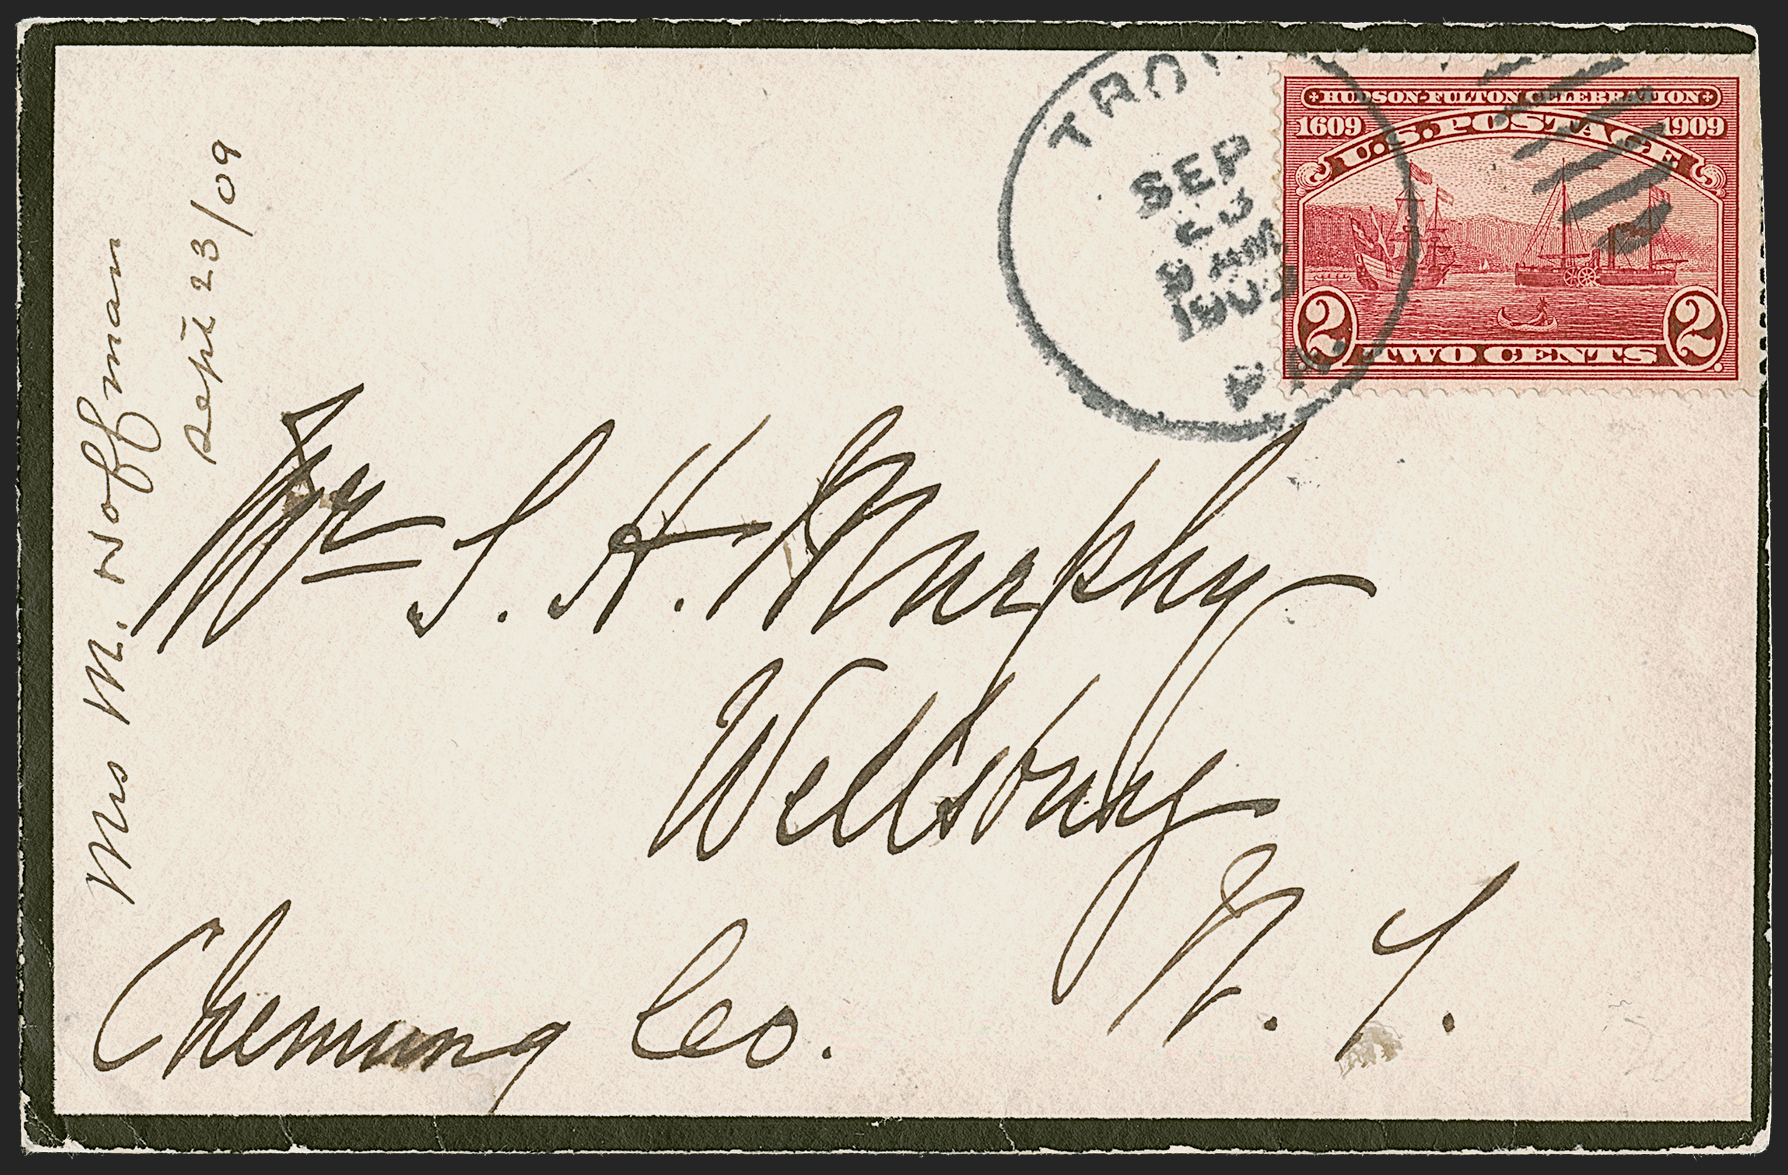 TROY
SEP
23
9 AM
1909
PA.
HUDSON-FULTON CELEBRATION
1609 1909
U.S. POSTAGE
2 2
TWO CENTS
Mrs M. Hoffman
Sept 23/09
Mr S. H. Murphy
Wellsburg
N. Y.
Chemung Co.